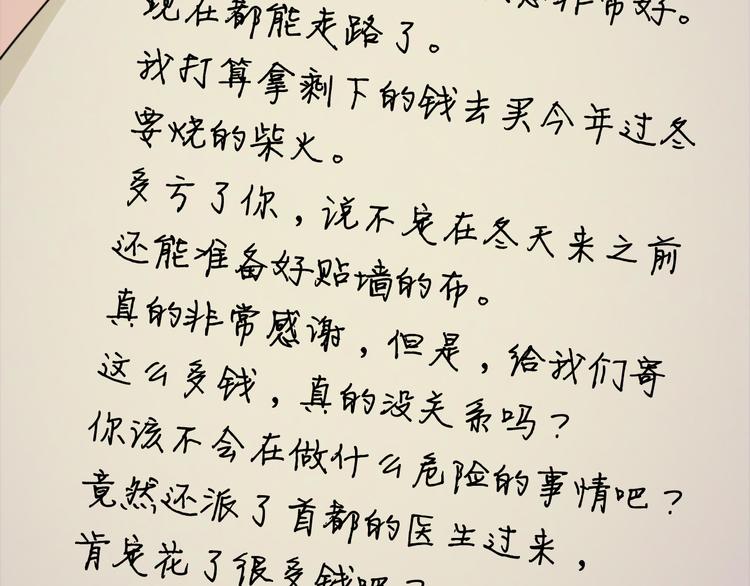 现在都能走路了。 非常好。
我打算拿剩下的钱去买今年过冬
要烧的柴火。
多亏了你，说不定在冬天来之前
还能准备好贴墙的布。
真的非常感谢，但是，给我们寄
这么多钱，真的没关系吗？
你该不会在做什么危险的事情吧？
竟然还派了首都的医生过来，
肯定花了很多钱吧？